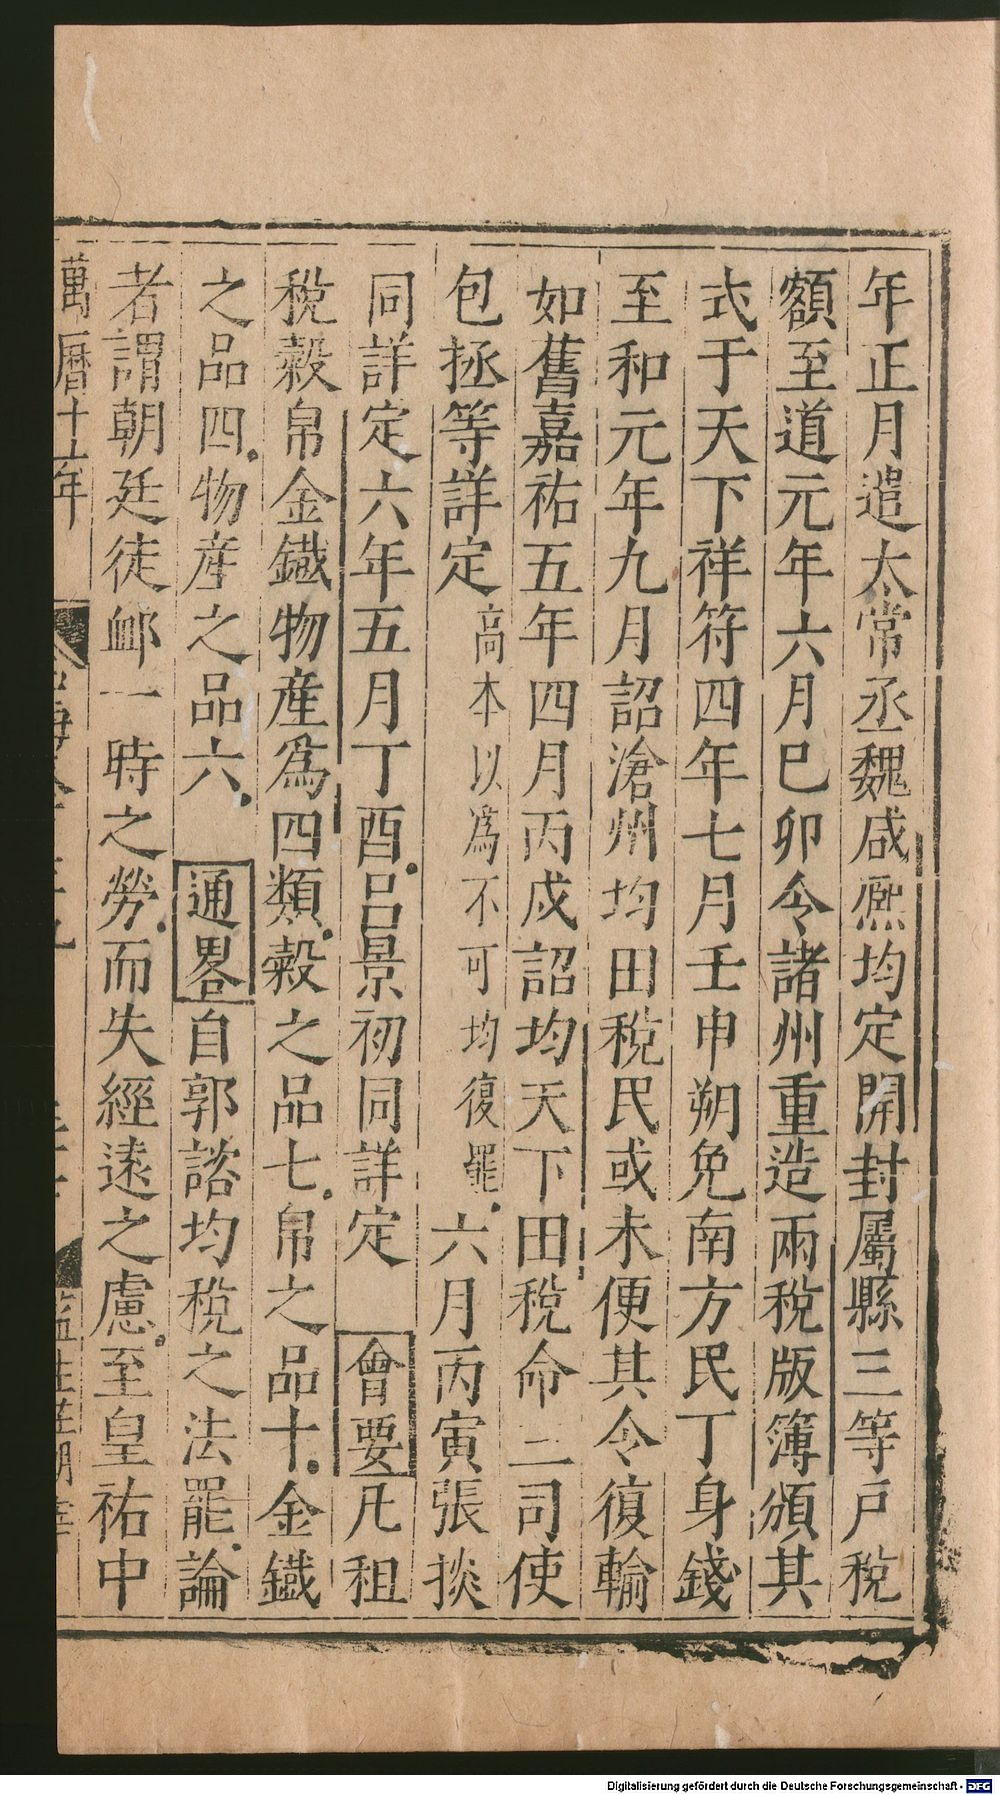 年正月遣太常丞魏咸熈均定開封屬縣三等戶稅
額至道元年六月巳卯令諸州重造兩稅版簿頒其
式于天下祥符四年七月壬申朔免南方民丁身錢
至和元年九月詔滄州均田稅民或未便其令復輸
如舊嘉祐五年四月丙戍詔均天下田稅命三司使
包拯等詳定高本以爲不可均復罷六月丙寅張掞
同詳定六年五月丁酉呂景初同詳定 會要凡租
稅穀帛金鐵物產爲四類穀之品七帛之品十金鐵
之品四物產之品六 通畧自郭諮均稅之法罷論
者謂朝廷徒䘏一時之勞而失經遠之慮至皇祐中
萬曆十六年
Digitalisierung gefördert durch die Deutsche Forschungsgemeinschaft - DFG